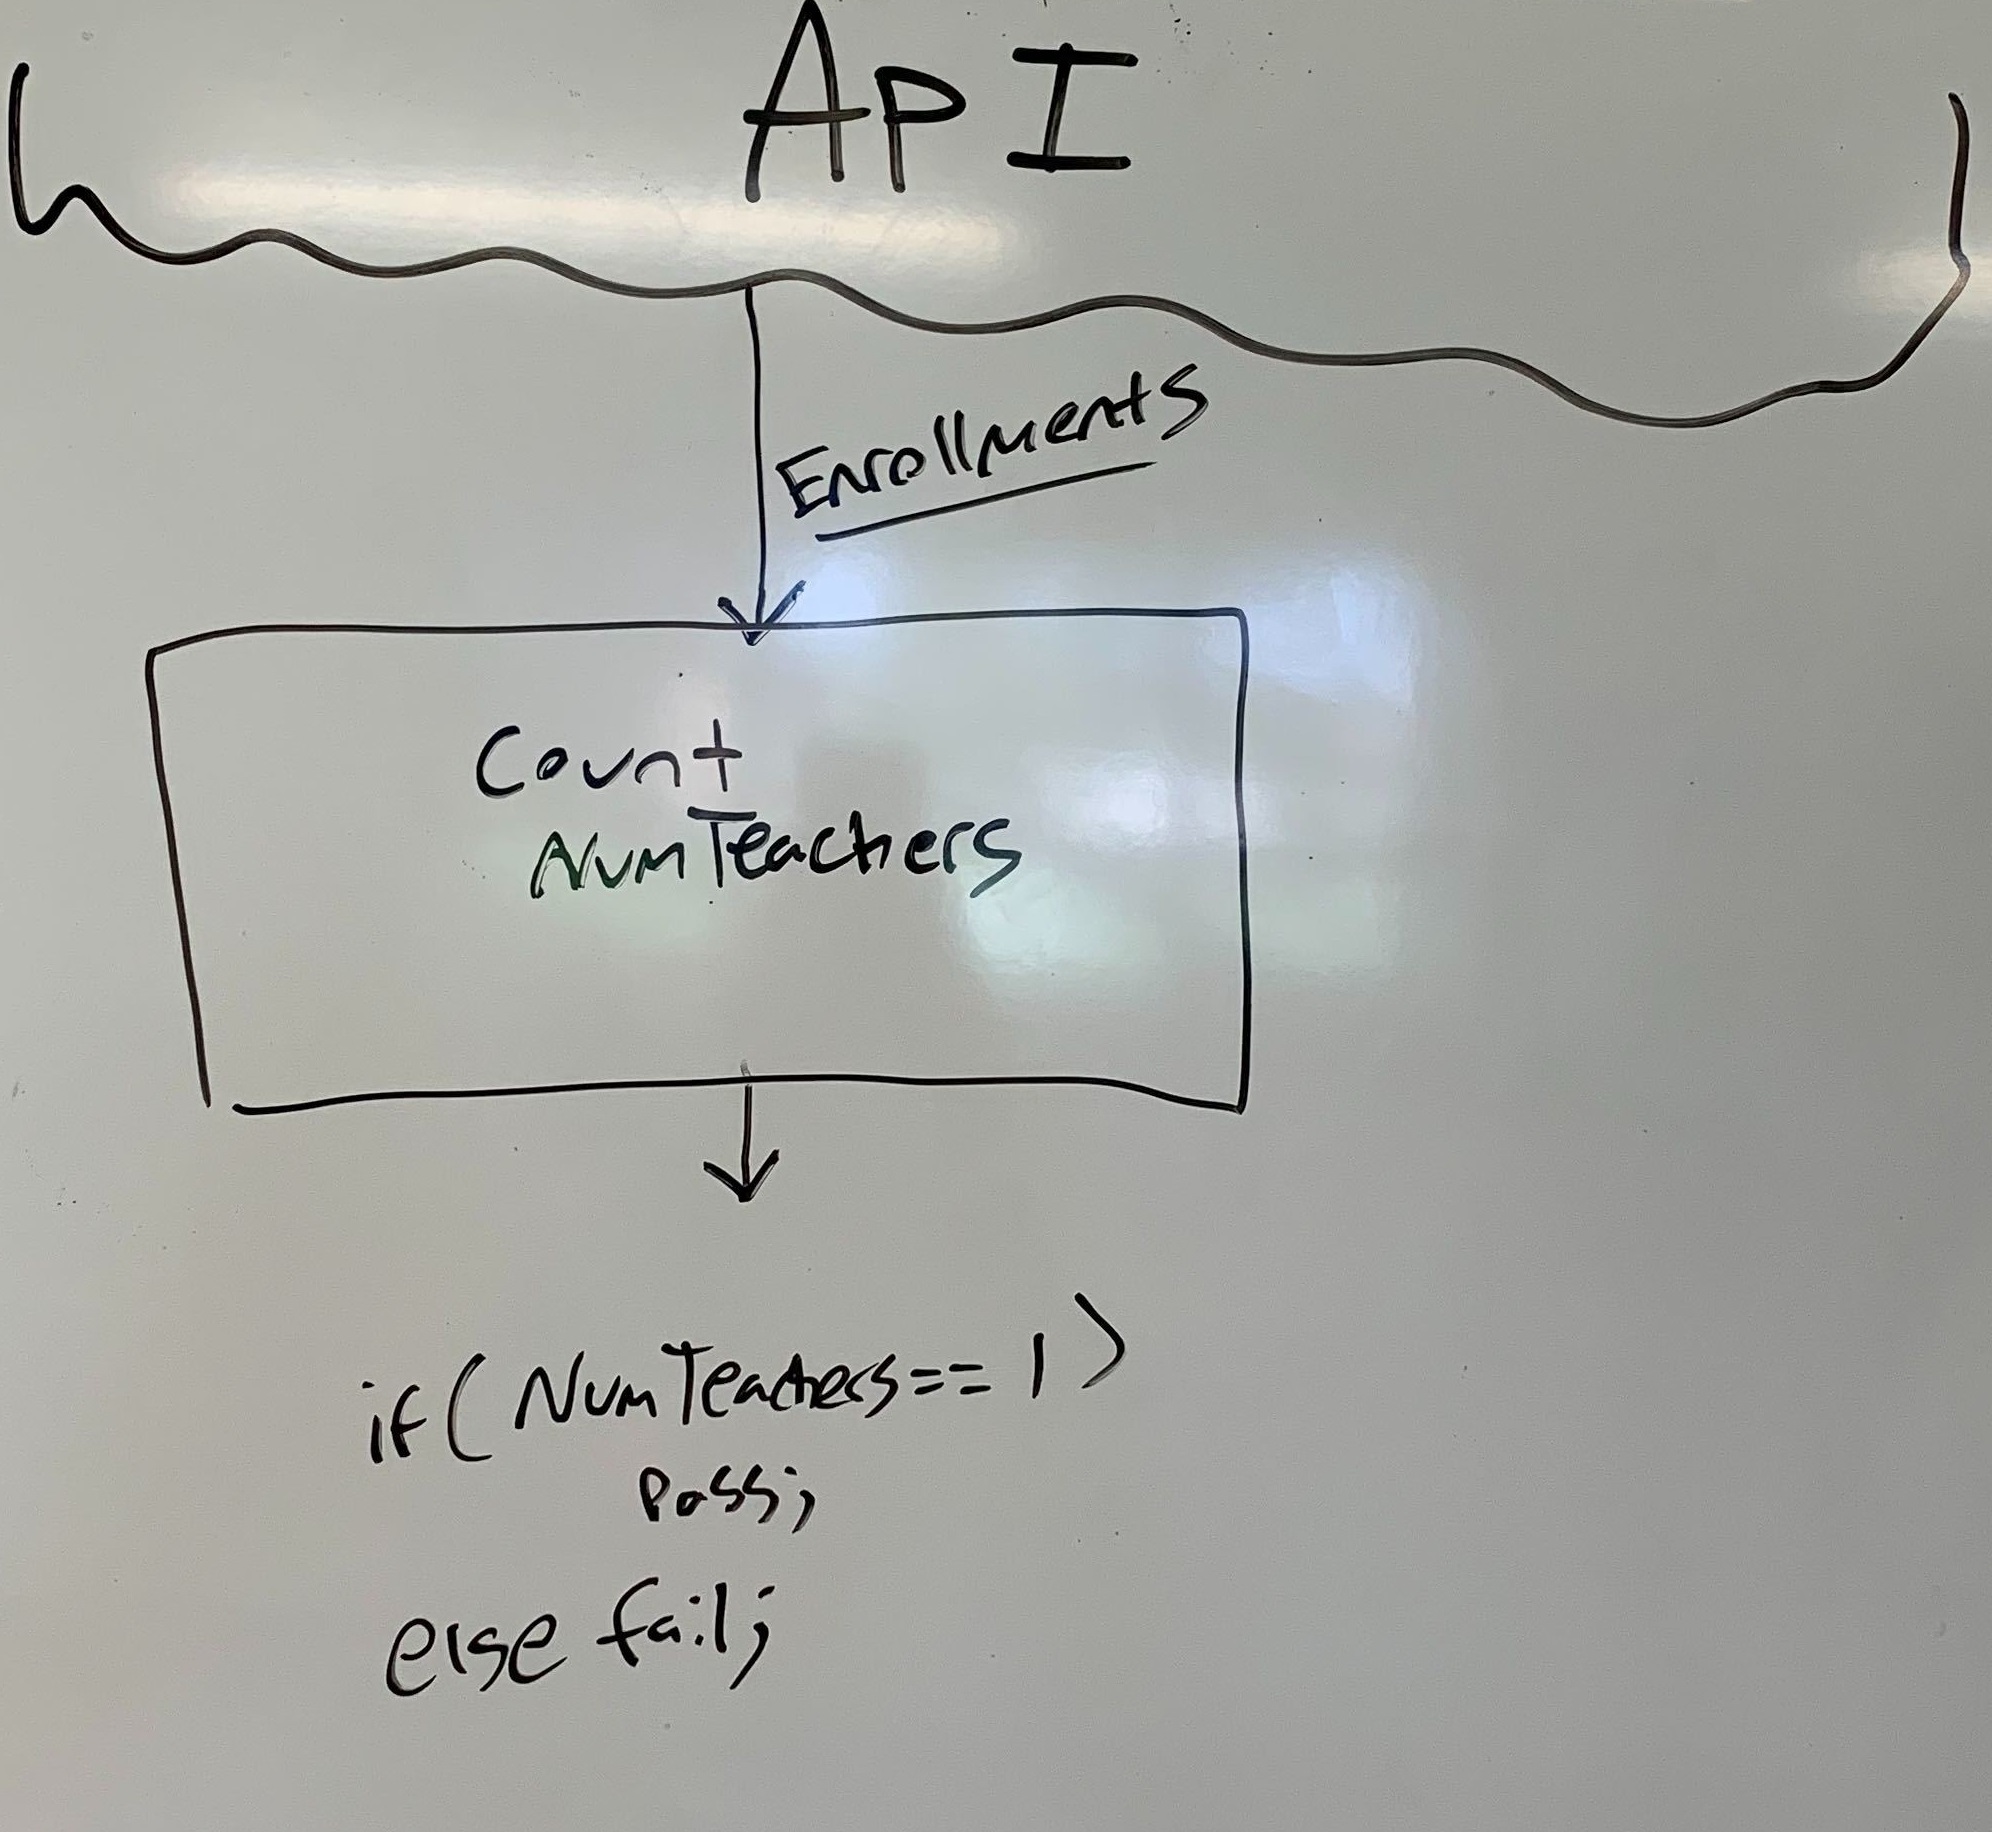 API
Enrollments
Count
NumTeachers
if( NumTeachers == 1)
pass;
else fail;